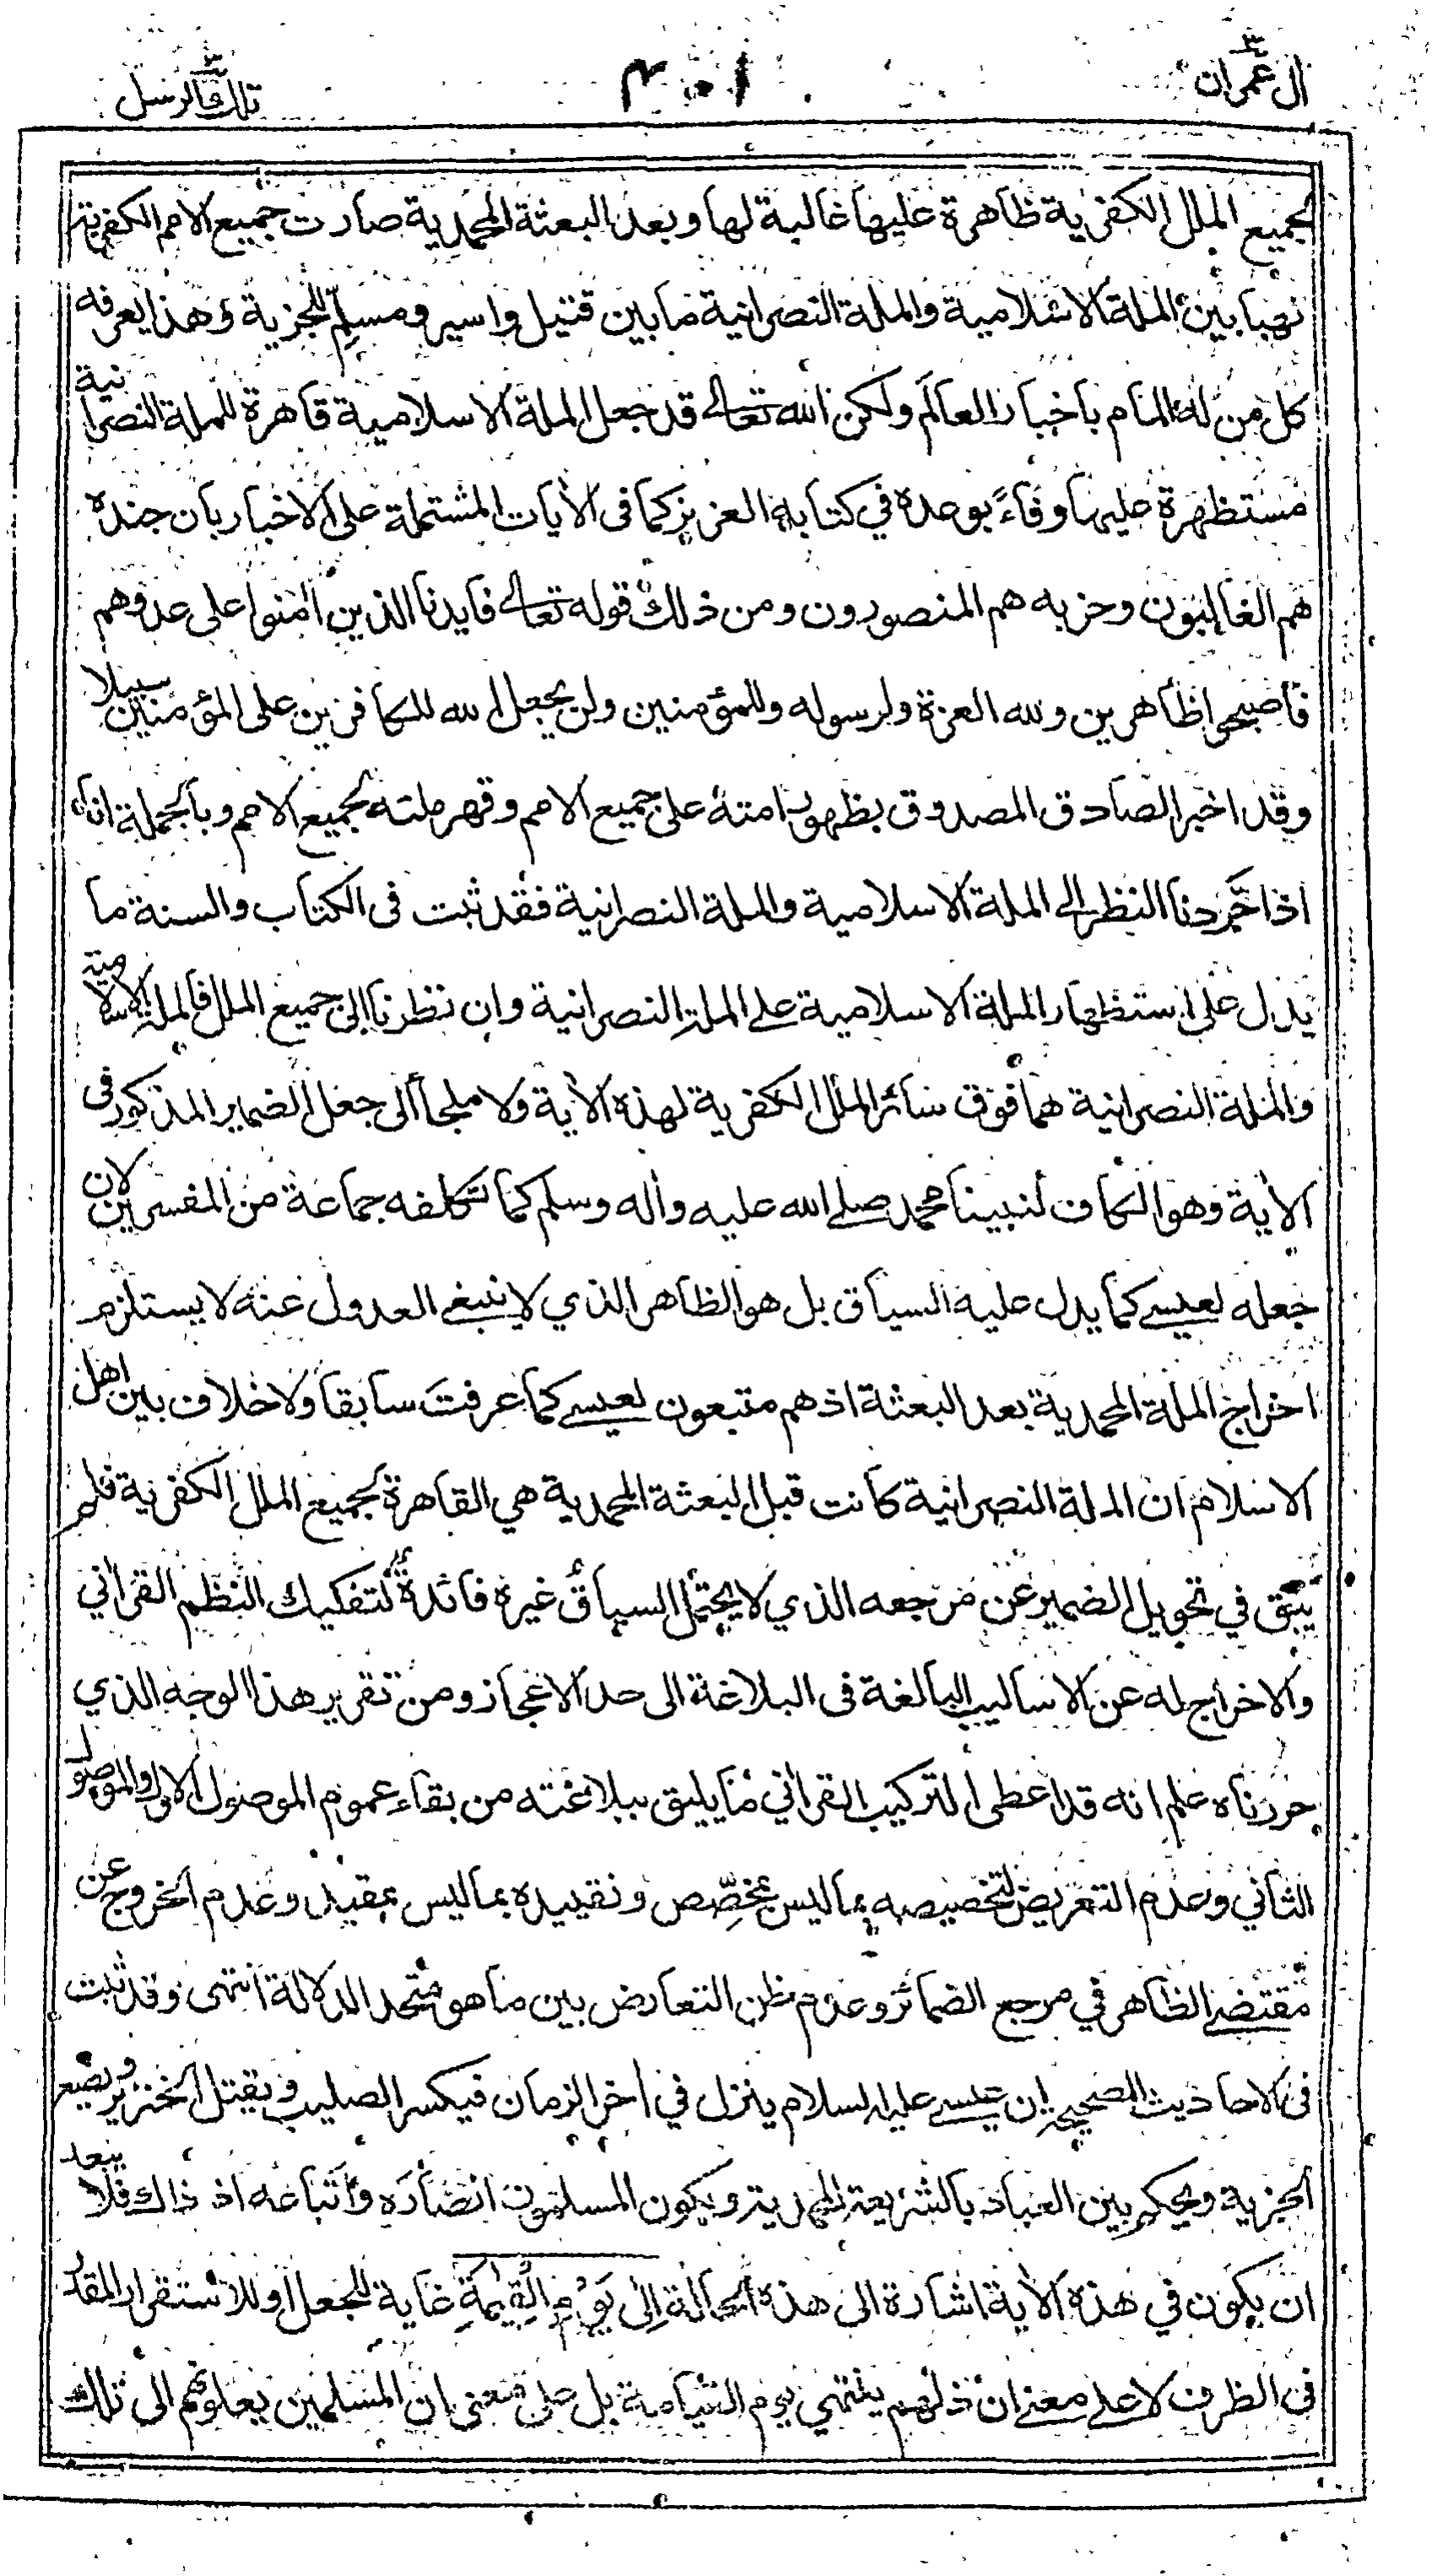 آل عمران ٣
١٠٤
تلك الرسل ٣
لجميع الملل الكفرية ظاهرة عليها غالبة لها وبعد البعثة المحمدية صارت جميع الامم الكفرية
نهبا بين الملة الاسلامية والملة النصرانية ما بين قتيل واسير ومسلم للجزية وهذا يعرفه
كل من له المام باخبار العالم ولكن الله تعالى قد جعل الملة الاسلامية قاهرة للملة النصرانية
مستظهرة عليها وفاءً بوعده في كتابه العزيز كما فى الآيات المشتملة على الاخبار بان جنده
هم الغالبون وحزبه هم المنصورون ومن ذلك قوله تعالى فايدنا الذين آمنوا على عدوهم
فأصبحوا ظاهرين ولله العزة ولرسوله وللمؤمنين ولن يجعل الله للكافرين على المؤمنين سبيلا
وقد اخبر الصادق المصدوق بظهور امته على جميع الامم وقهر ملته لجميع الامم وبالجملة انا
اذا جردنا النظر الى الملة الاسلامية والملة النصرانية فقد ثبت فى الكتاب والسنة ما
يدل على استظهار الملة الاسلامية على الملة النصرانية وان نظرنا الى جميع الملل فالملة الاسلامية
والملة النصرانية هما فوق سائر الملل الكفرية لهذه الآية ولا ملجأ الى جعل الضمير المذكور فى
الآية وهو الكاف لنبينا محمد صلى الله عليه وآله وسلم كما تكلفه جماعة من المفسرين لان
جعله لعيسى كما يدل عليه السياق بل هو الظاهر الذي لا ينبغى العدول عنه لا يستلزم
اخراج الملة المحمدية بعد البعثة اذ هم متبعون لعيسى كما عرفتَ سابقا ولا خلاف بين اهل
الاسلام ان الملة النصرانية كانت قبل البعثة المحمدية هي القاهرة لجميع الملل الكفرية فلم
يبق في تحويل الضمير عن مرجعه الذي لا يحتمل السياق غيره فائدة لتفكيك النظم القرآني
والاخراج له عن الاساليب البالغة فى البلاغة الى حد الاعجاز ومن تقرير هذا الوجه الذي
حررناه علم انه قد اعطى التركيب القرآني ما يليق ببلاغته من بقاء عموم الموصول الاول والموصول
الثاني وعدم التعريض لتخصيصه بما ليس بمخصِّص وتقييده بما ليس بمقيد وعدم الخروج عن
مقتضى الظاهر في مرجع الضمائر وعدم ظن التعارض بين ما هو متحد الدلالة انتهى وقد ثبت
فى الاحاديث الصحيحة ان عيسى عليه السلام ينزل في آخر الزمان فيكسر الصليب ويقتل الخنزير ويضع
الجزية ويحكم بين العباد بالشريعة المحمدية ويكون المسلمون انصاره وأتباعه اذ ذاك فلا يبعد
ان يكون في هذه الآية اشارة الى هذه الحالة إِلَى يَوْمِ الْقِيٰمَةِ غاية للجعل او للاستقرار المقدر
فى الظرف لا على معنى ان ذلهم ينتهي بيوم القيامة بل على معنى ان المسلمين يعلونهم الى تلك